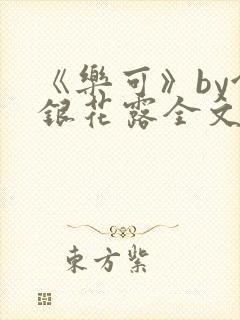 《樂可》by
銀花露全文
東方紫